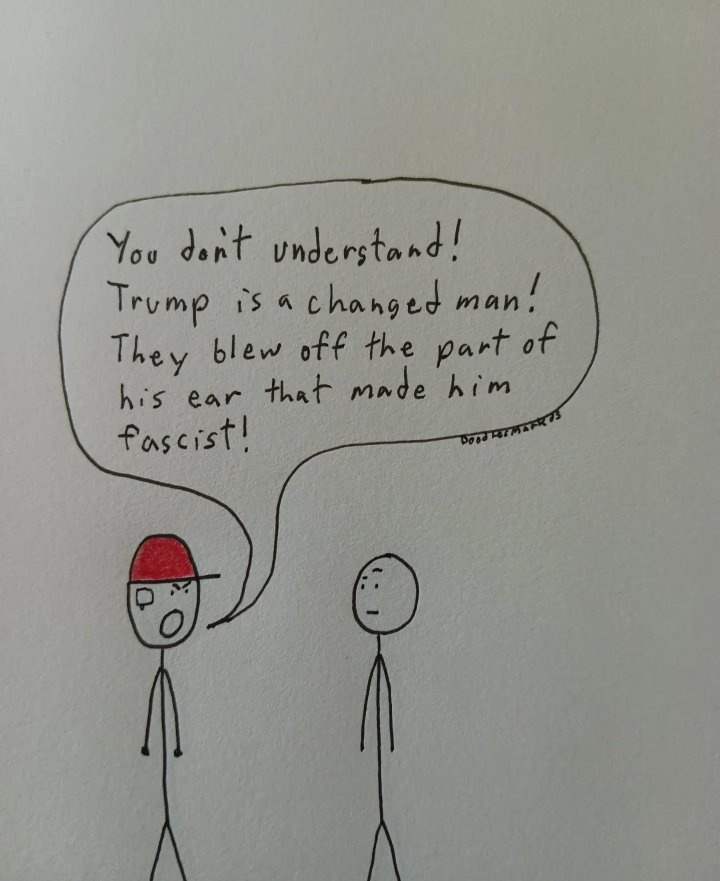 You don't understand!
Trump is a changed man!
They blew off the part of
his ear that made him
fascist!
DoodlesMarkus